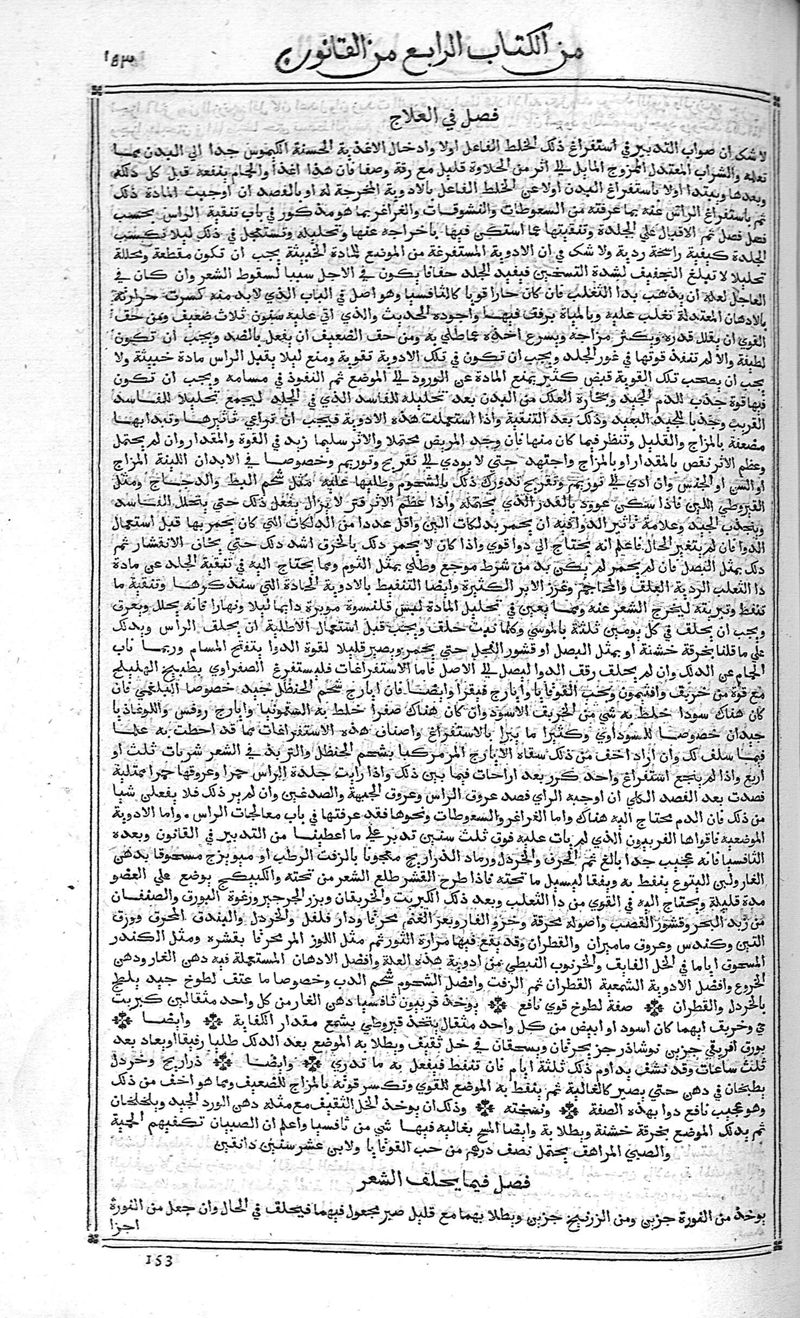 من الكتاب الرابع من القانون
١٥٣
فصل في العلاج
لا شك ان صواب التدبير في استفراغ ذلك الخلط الفاعل اولا وادخال الاغذية الحسنة الكيموس جدا الي البدن مما
تعلمه والشراب المعتدل المزوج المايل الي اثر من الحلاوة قليل مع رقة وصفا فان هذا اغذا والحمام ينفعه قبل كل ذلك
وبعدها ويبتدا اولا باستفراغ البدن اولا عن الخلط الفاعل بالادوية المخرجة له او بالفصد ان اوجبت المادة ذلك
ثم باستفراغ الراس عنه بما عرفته من السعوطات والنشوقات والغراغر بما هو مذكور في باب تنقية الراس بحسب
فصل فصل ثم الاقبال علي الجلدة وتنقيتها مما استكن فيها باخراجه عنها وتحليله وتستعجل في ذلك ليلا تكتسب
الجلدة كيفية راسخة ردية ولا شك في ان الادوية المستفرغة من الموضع للمادة الخبيثة يجب ان تكون مقطعة ومحللة
تحليلا لا تبلغ التجفيف لشدة التسخين فيفيد الجلد جفافا يكون في الاجل سببا لسقوط الشعر وان كان في
العاجل لعله ان يذهب بدا الثعلب فان كان حارا قويا كالثافسيا وهو اصل في الباب الذي لا بد منه كسرت حرارته
بالادهان المعتدلة تغلب عليه وبالمياه يرفق فيهما واجوده الحديث والذي اتي عليه سنون ثلاث ضعيف ومن حق
القوي ان يقلل قدره ويكثر مزاجه ويسرع اخذه مما طلي به ومن حق الضعيف ان يفعل بالضد ويجب ان تكون
لطيفة والا لم تنفذ قوتها في غور الجلد ويجب ان تكون في تلك الادوية تقوية ومنع ليلا يقبل الراس مادة خبيثة ولا
يجب ان يصحب تلك القوية قبض كثير يمنع المادة عن الورود الي الموضع ثم النفوذ في مسامه ويجب ان تكون
فيها قوة جذب للدم الجيد وبخاره من البدن بعد تحليله للفاسد الذي في الجلد ليجمع تحليلا للفاسد
القريب وجذبا للجيد البعيد وذلك بعد التنقية واذا استعملت هذه الادوية فيجب ان تراعي تاثيرها وتبدا بها
مضعفة بالمزاج والقليل وتنظر فيما كان منها فان وجد المريض محتملا والاثر سليما زيد في القوة والمقدار وان لم يحتمل
وعظم الاثر نقص بالمقدار او بالمزاج واجتهد حتي لا يودي الي تقريح وتوريم وخصوصا في الابدان اللينة المزاج
او السن او الجنس وان ادي الي توريم وتقريح تدورك ذلك بالشحوم وطليها عليه مثل شحم البط والدجاج ومثل
القيروطي اللين فاذا سكن عوود بالقدر الذي يحتمله واذا عظم الاثر فتر لا يزال يفعل ذلك حتي يتحلل الفاسد
وينجذب الجيد وعلامة تاثير الدوا فيه ان يحمر بدلكات الين واقل عددا من الدلكات التي كان يحمر بها قبل استعمال
الدوا فان لم يتغير الحال فاعلم انه يحتاج الي دوا قوي واذا كان لا يحمر دلك بالخرق اشد دلك حتي يخاف الانقشار ثم
دلك بمثل البصل فان لم يحمر لم يكن بد من شرط موجع وطلي بمثل الثوم ومما يحتاج اليه في تنقية الجلد عن مادة
دا الثعلب الردية العلق والمحاجم وغرز الابر الكثيرة وايضا التنفيط بالادوية الحادة التي سنذكرها وتنقية ما
تنفط وتبريته ليخرج الشعر عنه ومما يعين في تحليل المادة لبس قلنسوة موبرة دايما ليلا ونهارا فانه يحلل ويعرق
ويجب ان يحلق في كل يومين ثلثة بالموسي وكلما نبت حلق ويجب قبل استعمال الاطلية ان يحلق الراس ويدلك
علي ما قلنا بخرقة خشنة او بمثل البصل او قشور الفجل حتي يحمر ويصير قليلا لقوة الدوا بتفتح المسام وربما ناب
الحمام عن الدلك وان لم يحلق رقق الدوا ليصل الي الاصل فاما الاستفراغات فليستفرغ الصفراوي بطبيخ الهليلج
مع قوة من خربق وافتيمون وبحب القوقايا وايارج فيقرا وايضا فان ايارج شحم الحنظل جيد خصوصا البلغمي فان
كان هناك سودا خلط به شي من الخربق الاسود وان كان هناك صفرا خلط به السقمونيا وايارج روفس واللوغاذيا
جيدان خصوصا للسوداوي وكثيرا ما يبرا بالاستفراغ واصناف هذه الاستفراغات مما قد احطت به علما
فيما سلف لك وان اراد اخف من ذلك سقاه الايارج المر مركبا بشحم الحنظل والتربد في الشهر شربات ثلث او
اربع واذا لم ينجع استفراغ واحد كرر بعد اراحات فيما بين ذلك واذا رايت جلدة الراس حمرا وعروقها حمرا ممتلية
فصدت بعد الفصد الكلي ان اوجبه الراي فصد عروق الراس وعروق الجبهة والصدغين وان لم ير ذلك فلا يفعلن شيا
من ذلك فان الدم محتاج اليه هناك واما الغراغر والسعوطات ونحوها فقد عرفتها في باب معالجات الراس واما الادوية
الموضعية فاقواها الفربيون الذي لم يات عليه فوق ثلث سنين تدبر علي ما اعطينا من التدبير في القانون وبعده
الثافسيا فانه عجيب جدا بالغ ثم الحرف والخردل ورماد الذراريح معجونا بالزفت الرطب او ميويزج مسحوقا بدهن
الغار ولبن اليتوع ينفط به ويفقا ليسيل ما تحته فاذا طرح القشر طلع الشعر من تحته والكبيكج يوضع علي العضو
مدة قليلة ويحتاج اليه في القوي من دا الثعلب وبعد ذلك الكبريت والخربقان وبزر الجرجير ورغوة البورق والصنفان
من زبد البحر وقشور القصب واصوله محرقة وخرو الفار وبعر الغنم محرقا ودار فلفل والخردل والبندق المحرق وورق
التين وكندس وعروق ماميران والقطران وقد يقع فيها مرارة الثور ثم مثل اللوز المر محرقا بقشره ومثل الكندر
المسحوق اياما في الخل الفايق والخرنوب النبطي من ادوية هذه العلة وافضل الادهان المستعملة فيه دهن الغار ودهن
الخروع وافضل الادوية الشمعية القطران ثم الزفت وافضل الشحوم شحم الدب وخصوصا ما عتق لطوخ جيد بلطخ
بالخردل والقطران ❋ صفة لطوخ قوي نافع ❋ يوخذ فربيون ثافسيا دهن الغار من كل واحد مثقالين كبريت
حي وخربق ايهما كان اسود او ابيض من كل واحد مثقال يتخذ قيروطي بشمع مقدار الكفاية ❋ وايضا ❋
بورق افريقي جزين نوشادر جز يحرقان ويسحقان في خل ثقيف ويطلا به الموضع بعد الدلك طليا رقيقا ويعاد بعد
ثلث ساعات وقد نشف يداوم ذلك ثلثة ايام فان تنفط فيفعل به ما تدري ❋ وايضا ❋ ذراريح وخردل
يطبخان في دهن حتي يصير كالغالية ثم ينفط به الموضع للقوي وتكسر قوته بالمزاج للضعيف ومما هو اخف من ذلك
وهو عجيب نافع دوا بهذه الصفة ❋ ونسخته ❋ وذلك ان يوخذ الخل الثقيف مع مثله دهن الورد الجيد ويخلخلان
ثم يدلك الموضع بخرقة خشنة ويطلا به وايضا الميعة بغالية فيها شي من ثافسيا واعلم ان الصبيان تكفيهم الحبة
والصبي المراهق يحتمل نصف درهم من حب القوقايا ولابن عشر سنين دانقين
فصل فيما يحلق الشعر
يوخذ من النورة جزين ومن الزرنيخ جزين ويطلا بهما مع قليل صبر مجعول فيهما فيحلق في الحال وان جعل من النورة
اجزا
153